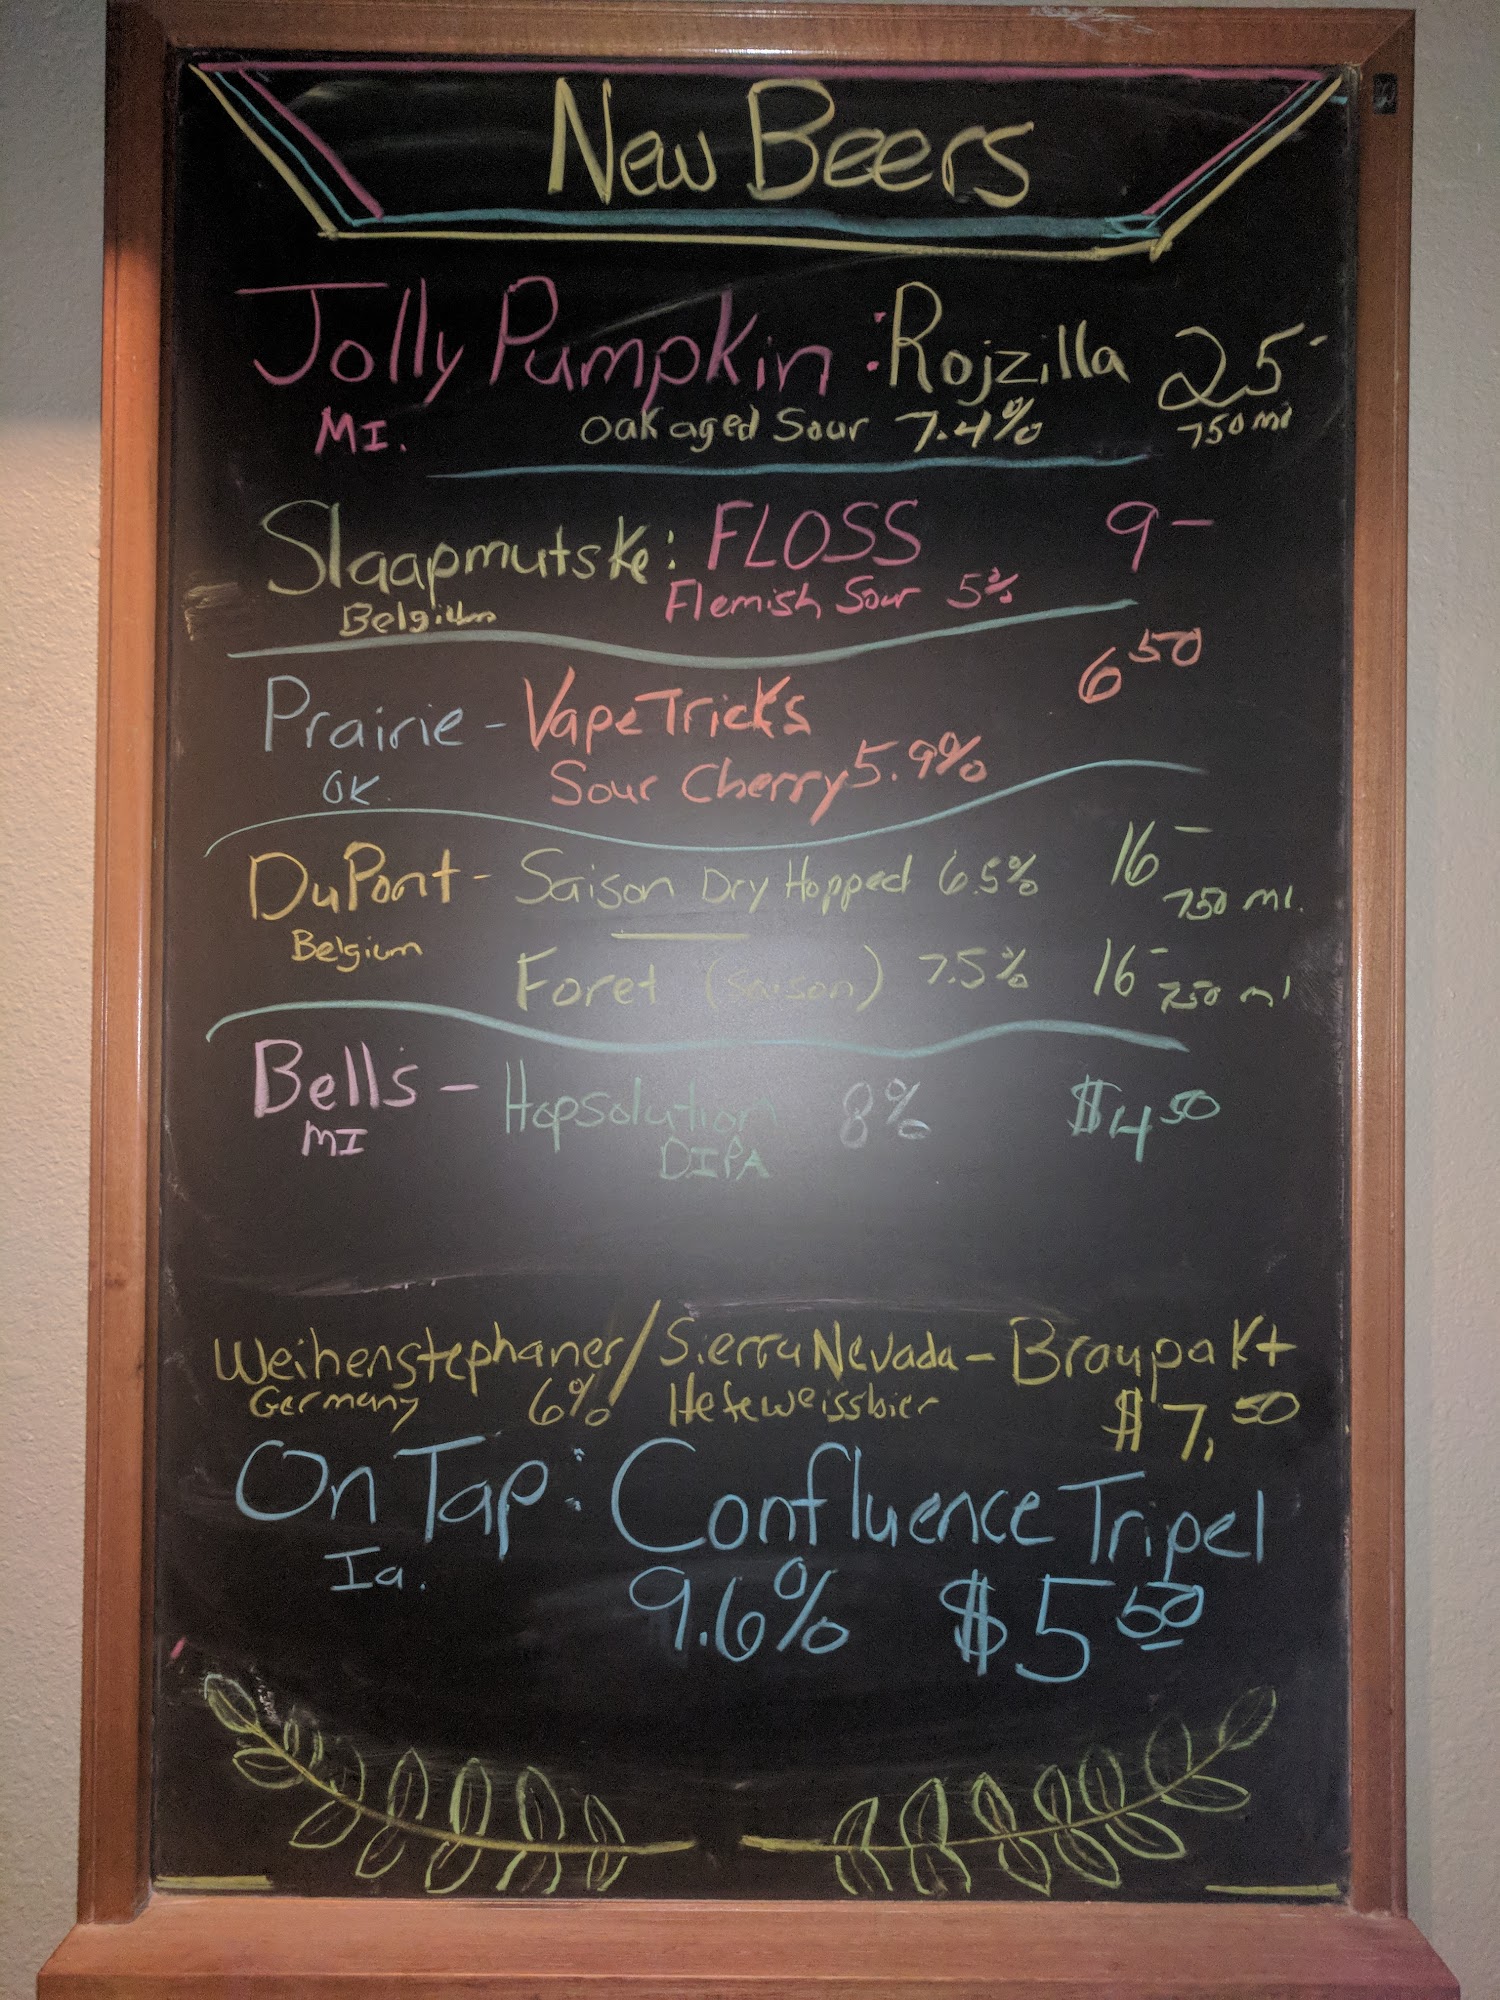 New Beers
Jolly Pumpkin : Rojzilla 25-
MI. Oak aged Sour 7.4% 750 ml
Slaapmutske: FLOSS 9-
Belgium Flemish Sour 5%
Prairie - Vape Tricks 6 50
OK. Sour Cherry 5.9%
DuPont - Saison Dry Hopped 6.5% 16- 750 ml.
Belgium
Foret (Saison) 7.5% 16- 750 ml
Bells - Hopsolution 8% $4 50
MI DIPA
Weihenstephaner / Sierra Nevada - Braupakt
Germany 6% Hefeweissbier $7, 50
On Tap: Confluence Tripel
Ia. 9.6% $5 50